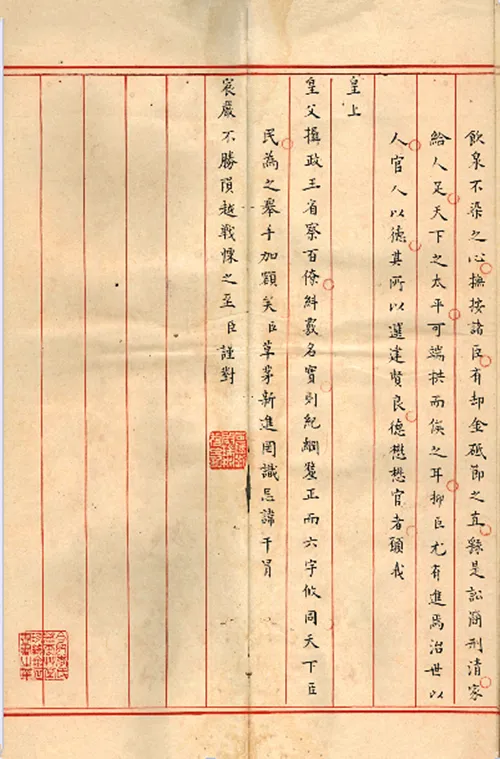 飲泉不染之心撫按諸臣有却金砥節之直繇是訟簡刑清家
給人足天下之太平可端拱而俟之耳抑臣尤有進焉治世以
人官人以德其所以選建賢良德懋懋官者願我
皇上
皇父攝政王省察百僚糾覈名實則紀綱釐正而六字攸同天下臣
民為之舉手加額矣臣草茅新進罔識忌諱干冒
宸嚴不勝隕越戰慄之至臣謹對